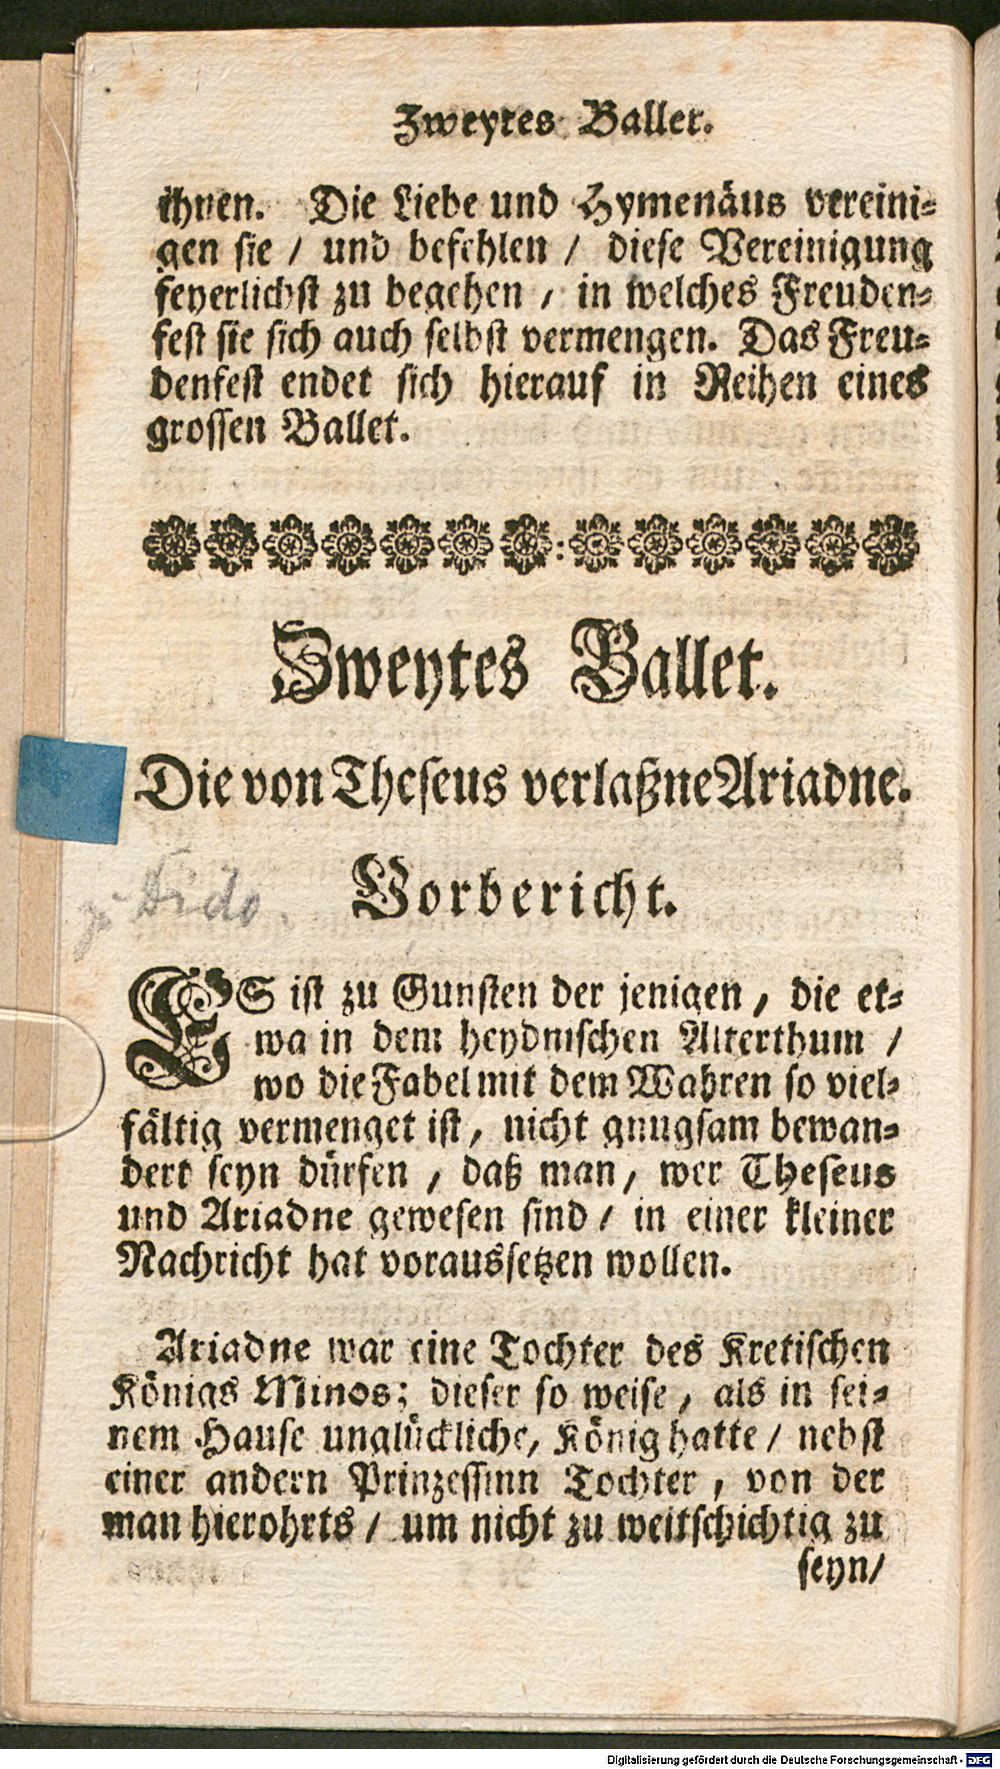 Zweytes Ballet.
ihnen. Die Liebe und Hymenäus vereini-
gen sie / und befehlen / diese Vereinigung
feyerlichst zu begehen / in welches Freuden-
fest sie sich auch selbst vermengen. Das Freu-
denfest endet sich hierauf in Reihen eines
grossen Ballet.
Zweytes Ballet.
Die von Theseus verlaßne Ariadne.
Vorbericht.
zu Dido.
ES ist zu Gunsten der jenigen, die et-
wa in dem heydnischen Alterthum /
wo die Fabel mit dem Wahren so viel-
fältig vermenget ist, nicht gnugsam bewan-
dert seyn dürfen, daß man, wer Theseus
und Ariadne gewesen sind / in einer kleiner
Nachricht hat voraussetzen wollen.
Ariadne war eine Tochter des Kretischen
Königs Minos; dieser so weise, als in sei-
nem Hause unglückliche, König hatte / nebst
einer andern Prinzessinn Tochter, von der
man hierohrts / um nicht zu weitschichtig zu
seyn /
Digitalisierung gefördert durch die Deutsche Forschungsgemeinschaft - DFG